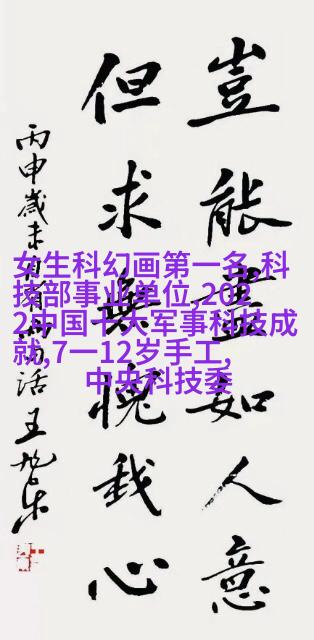 豈能盡如人意
但求無愧我心
丙申歲末
王旭东
女生科幻画第一名,科
技部事业单位,202
2中国十大军事科技成
就,7一12岁手工,
中央科技委